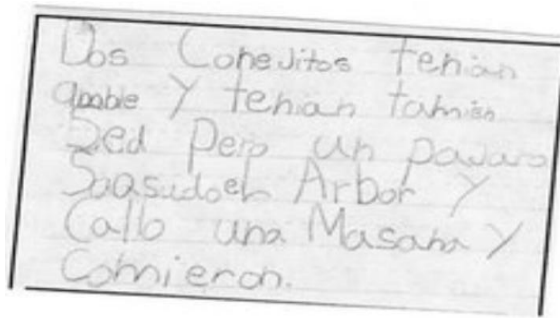 Dos Conejitos tenian
y tenian tamien
Sed Pero un pavaro
Arbor y
Callo una Masana y
Comieron.